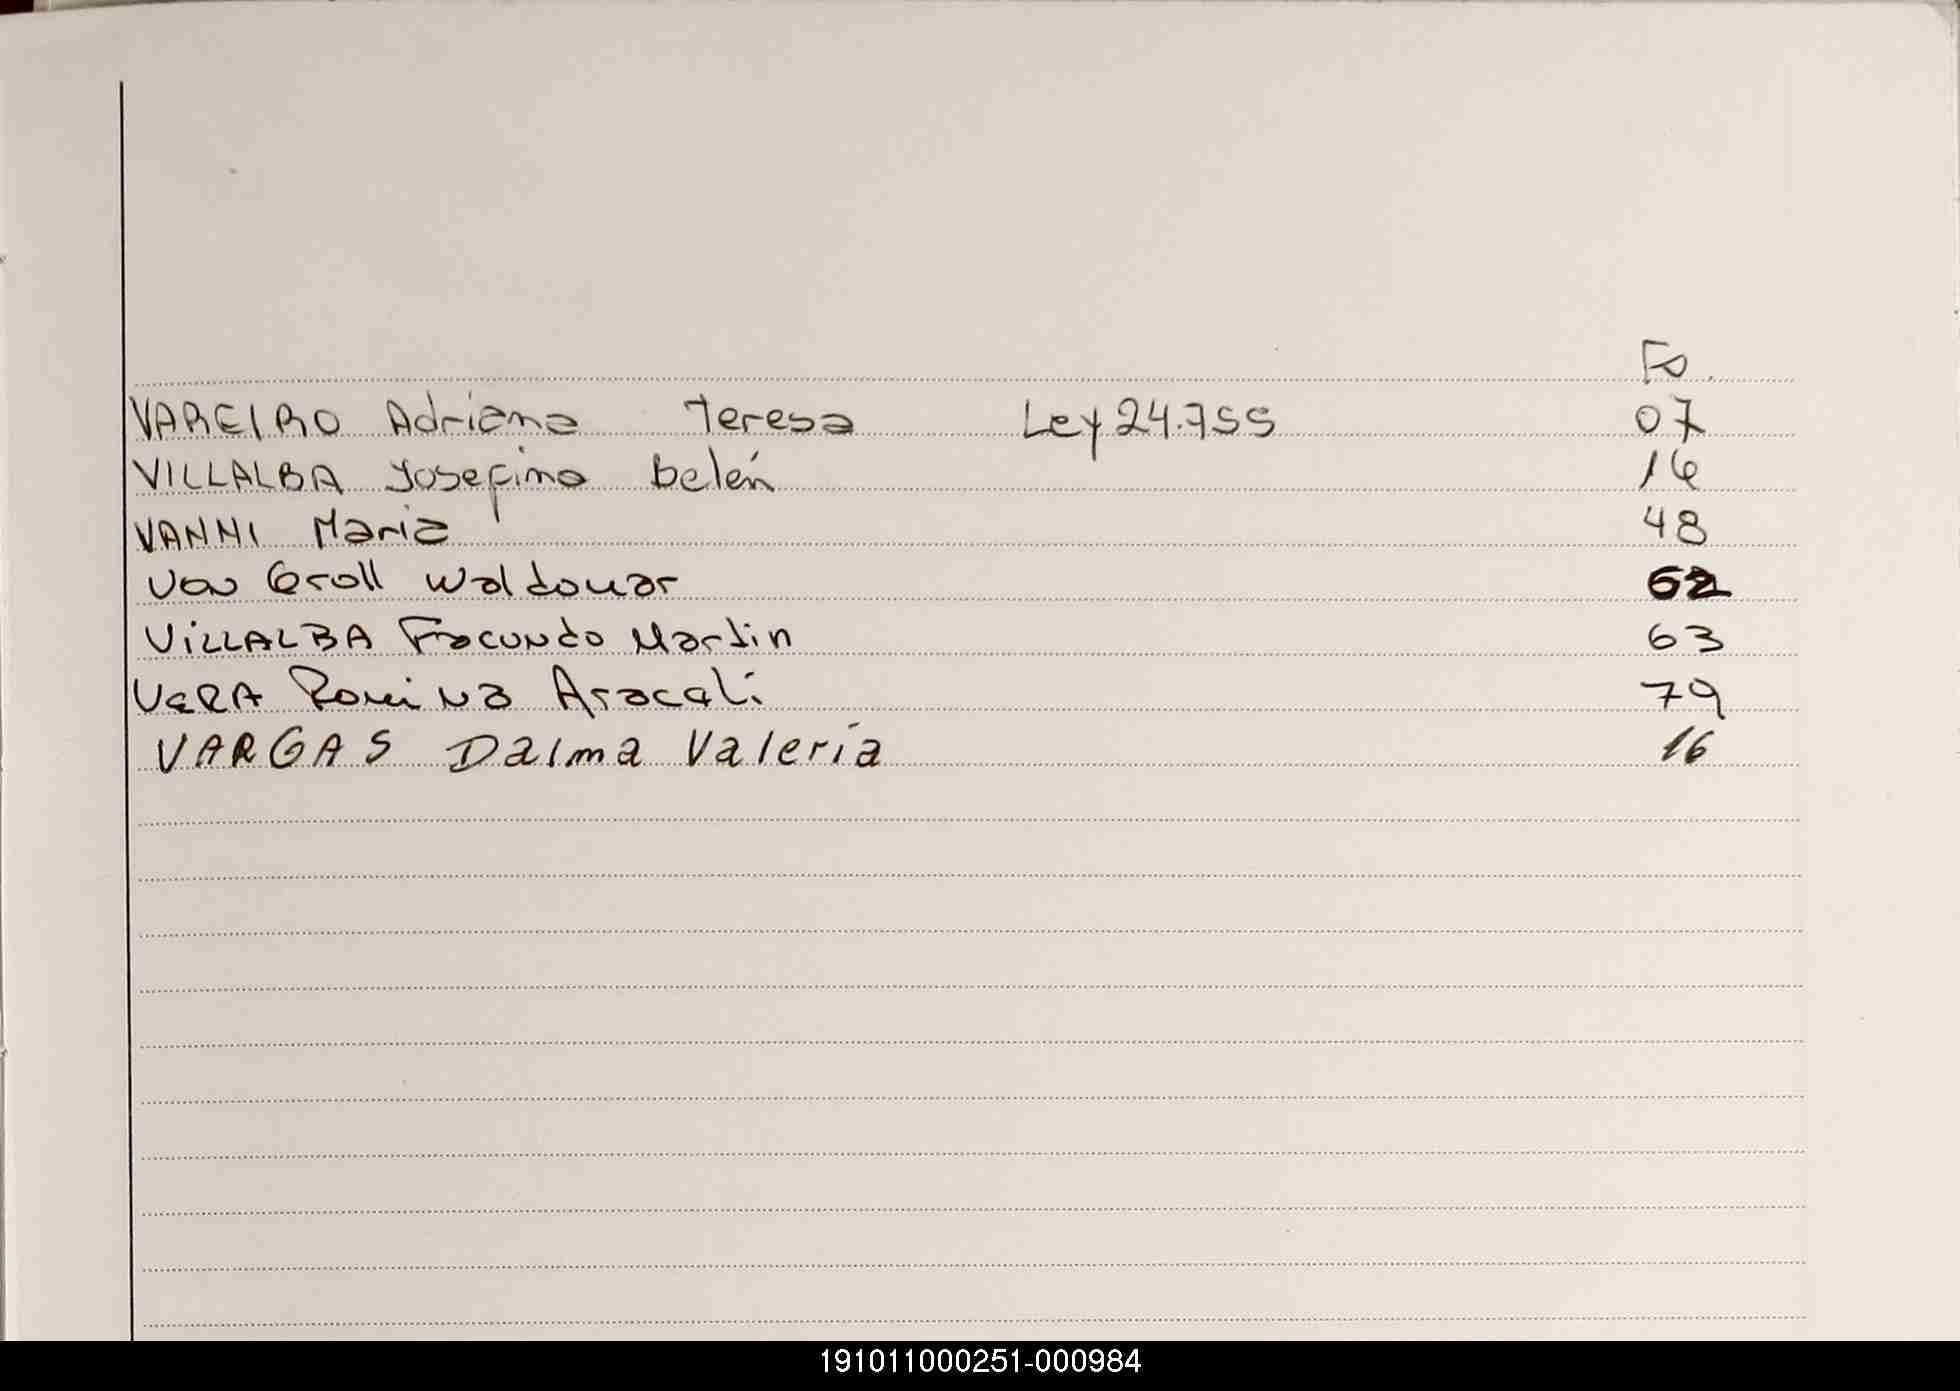 Fo.
VAREIRO Adriana Teresa Ley 24.755 07
VILLALBA Josefina Belén 16
VANNI Maria 48
Von Groll Waldomar 62
ViLLALBA Facundo Martin 63
VERA Romina Aracali 79
VARGAS Dalma Valeria 16
191011000251-000984